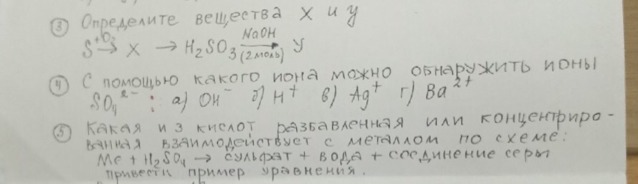 ③ Определите вещества X и У
S +O₃→ X → H₂SO₃ NaOH→(2моль) У
④ С помощью какого иона можно обнаружить ионы
SO₄²⁻: а) OH⁻ б) H⁺ в) Ag⁺ г) Ba²⁺
⑤ Какая из кислот разбавленная или концентриро-
ванная взаимодействует с металлом по схеме:
Me + H₂SO₄ → сульфат + вода + соединение серы
привести пример уравнения.